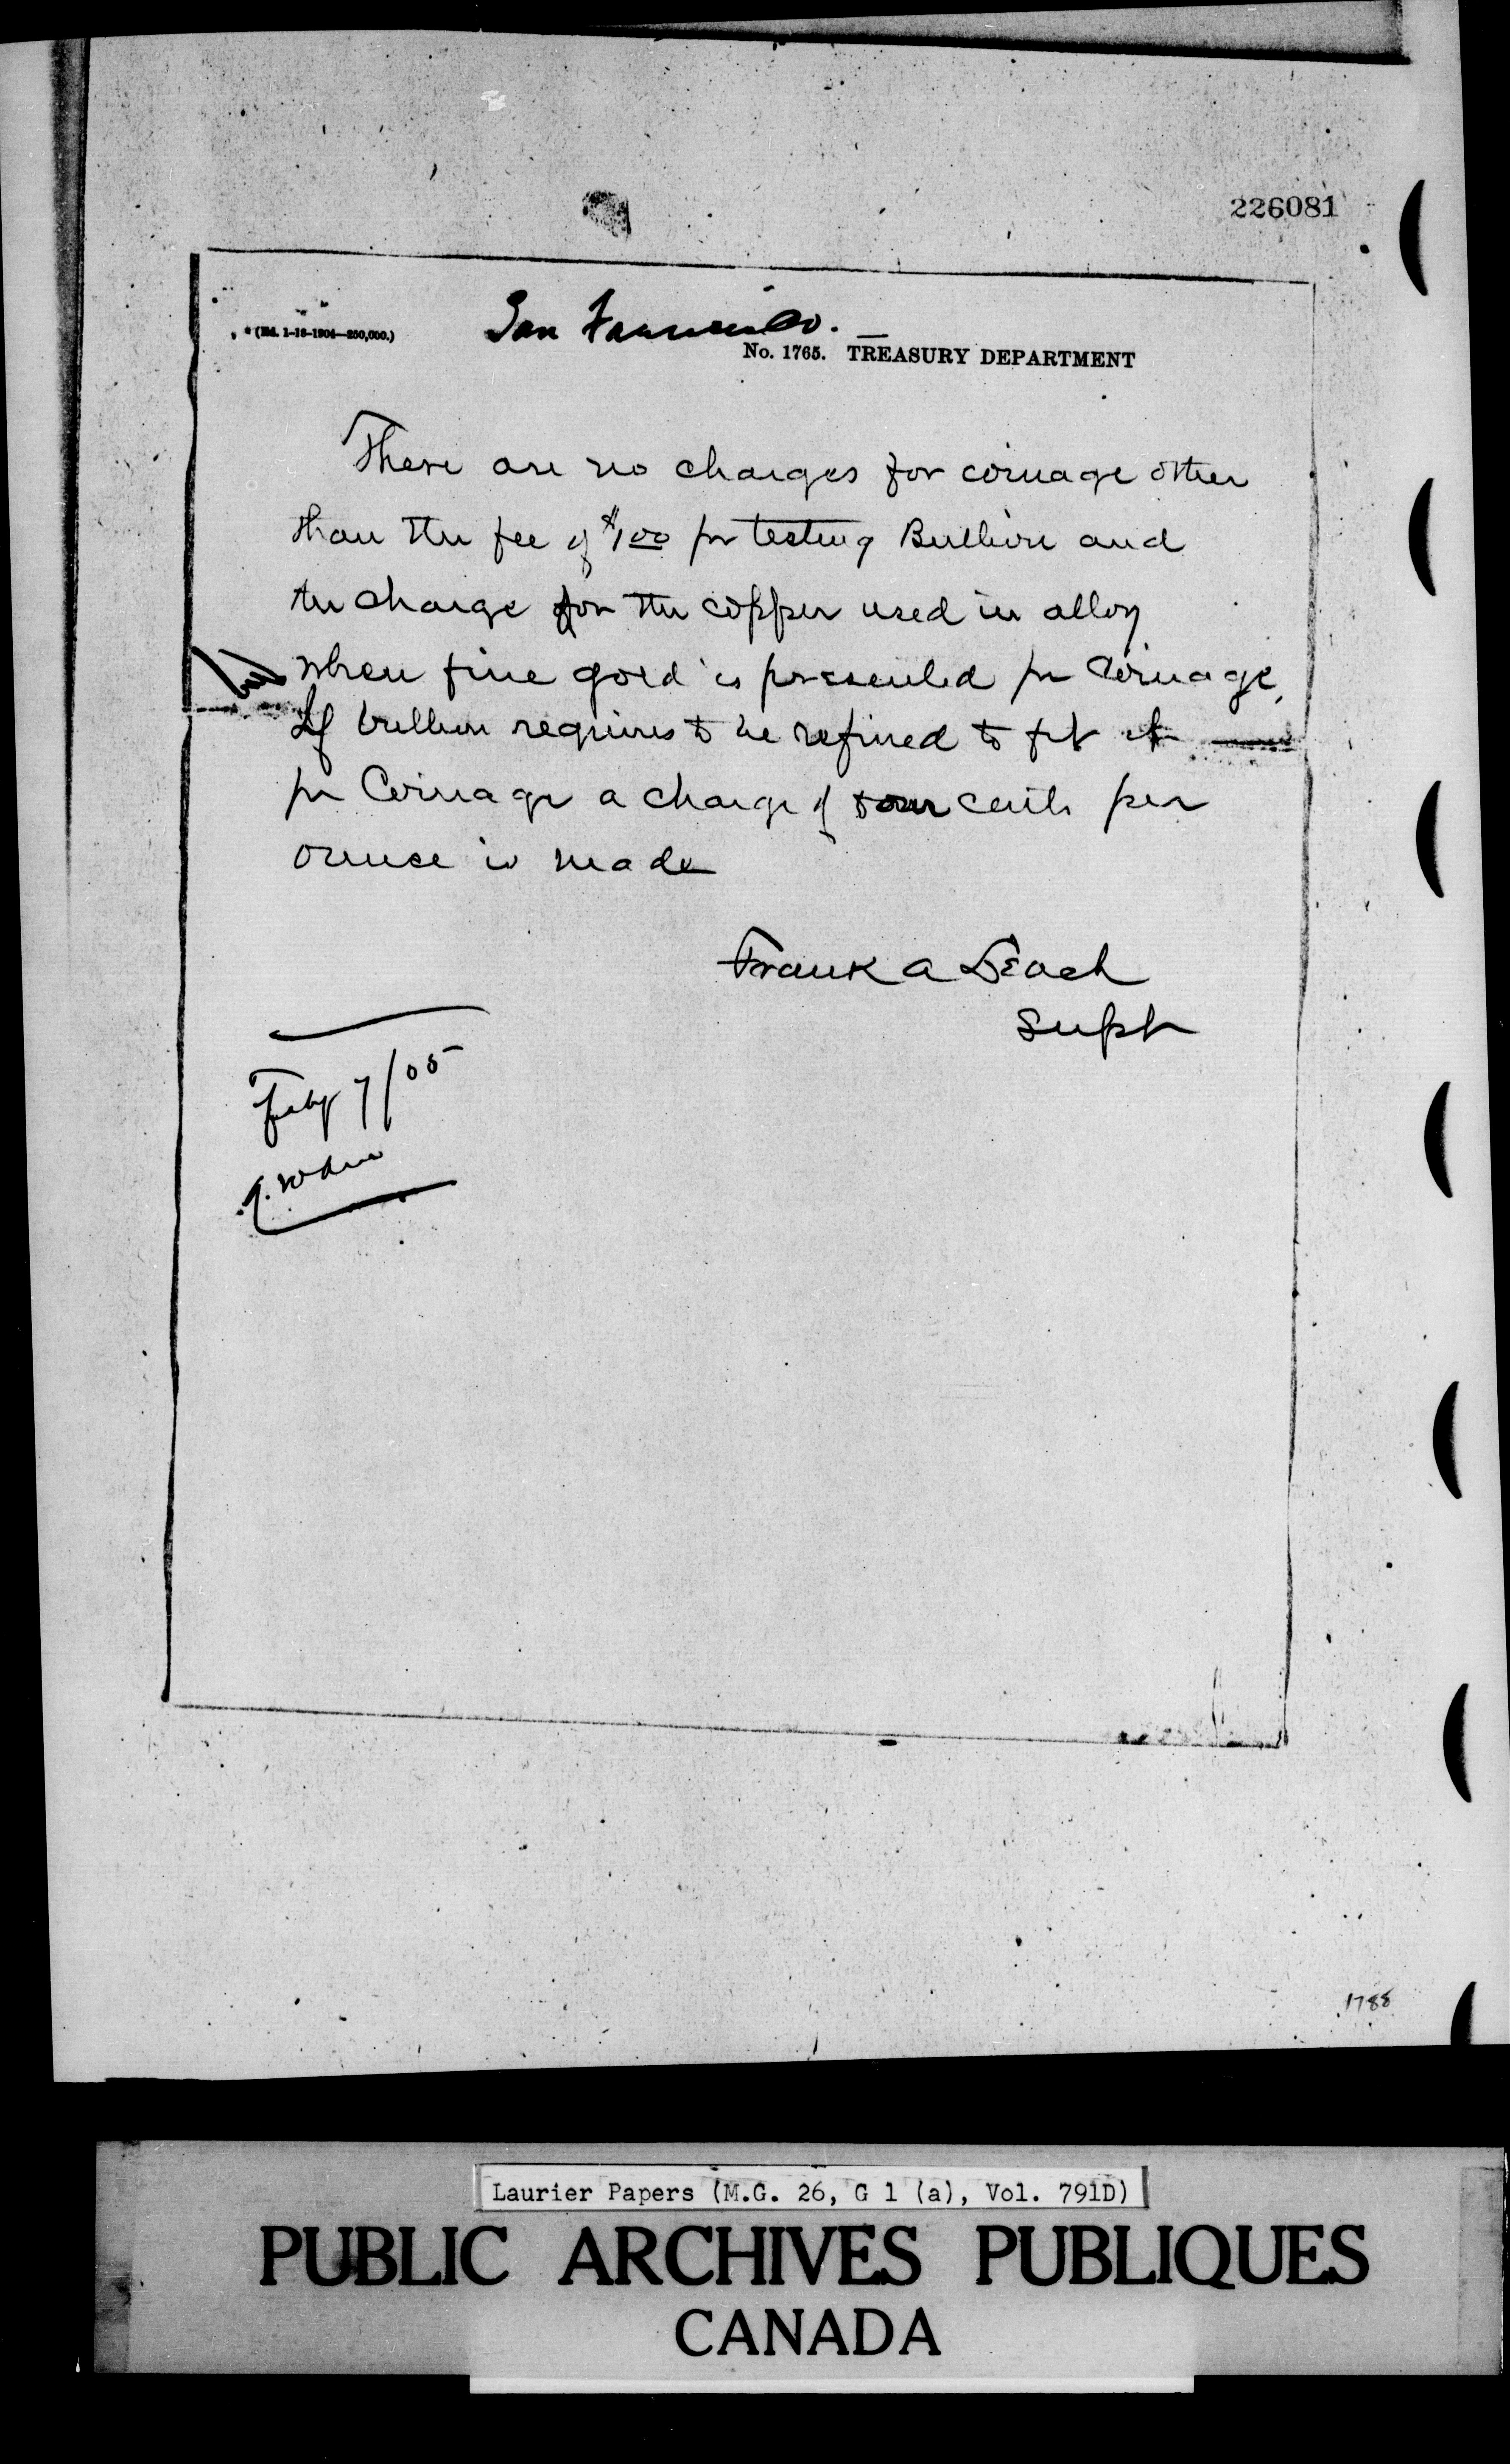 226081
San Francisco.
(Ed. 1-18-1904—250,000.)
No. 1765. TREASURY DEPARTMENT
There are no charges for coinage other
than the fee of $1 00 for testing Bullion and
the charge for the copper used in alloy
when fine gold is presented for Coinage,
If bullion requires to be refined to fit it
for Coinage a charge of four cents per
ounce is made
Frank A Leach
Supt
Feby 7/05
1788
Laurier Papers (M.G. 26, G 1 (a), Vol. 791D)
PUBLIC ARCHIVES PUBLIQUES
CANADA